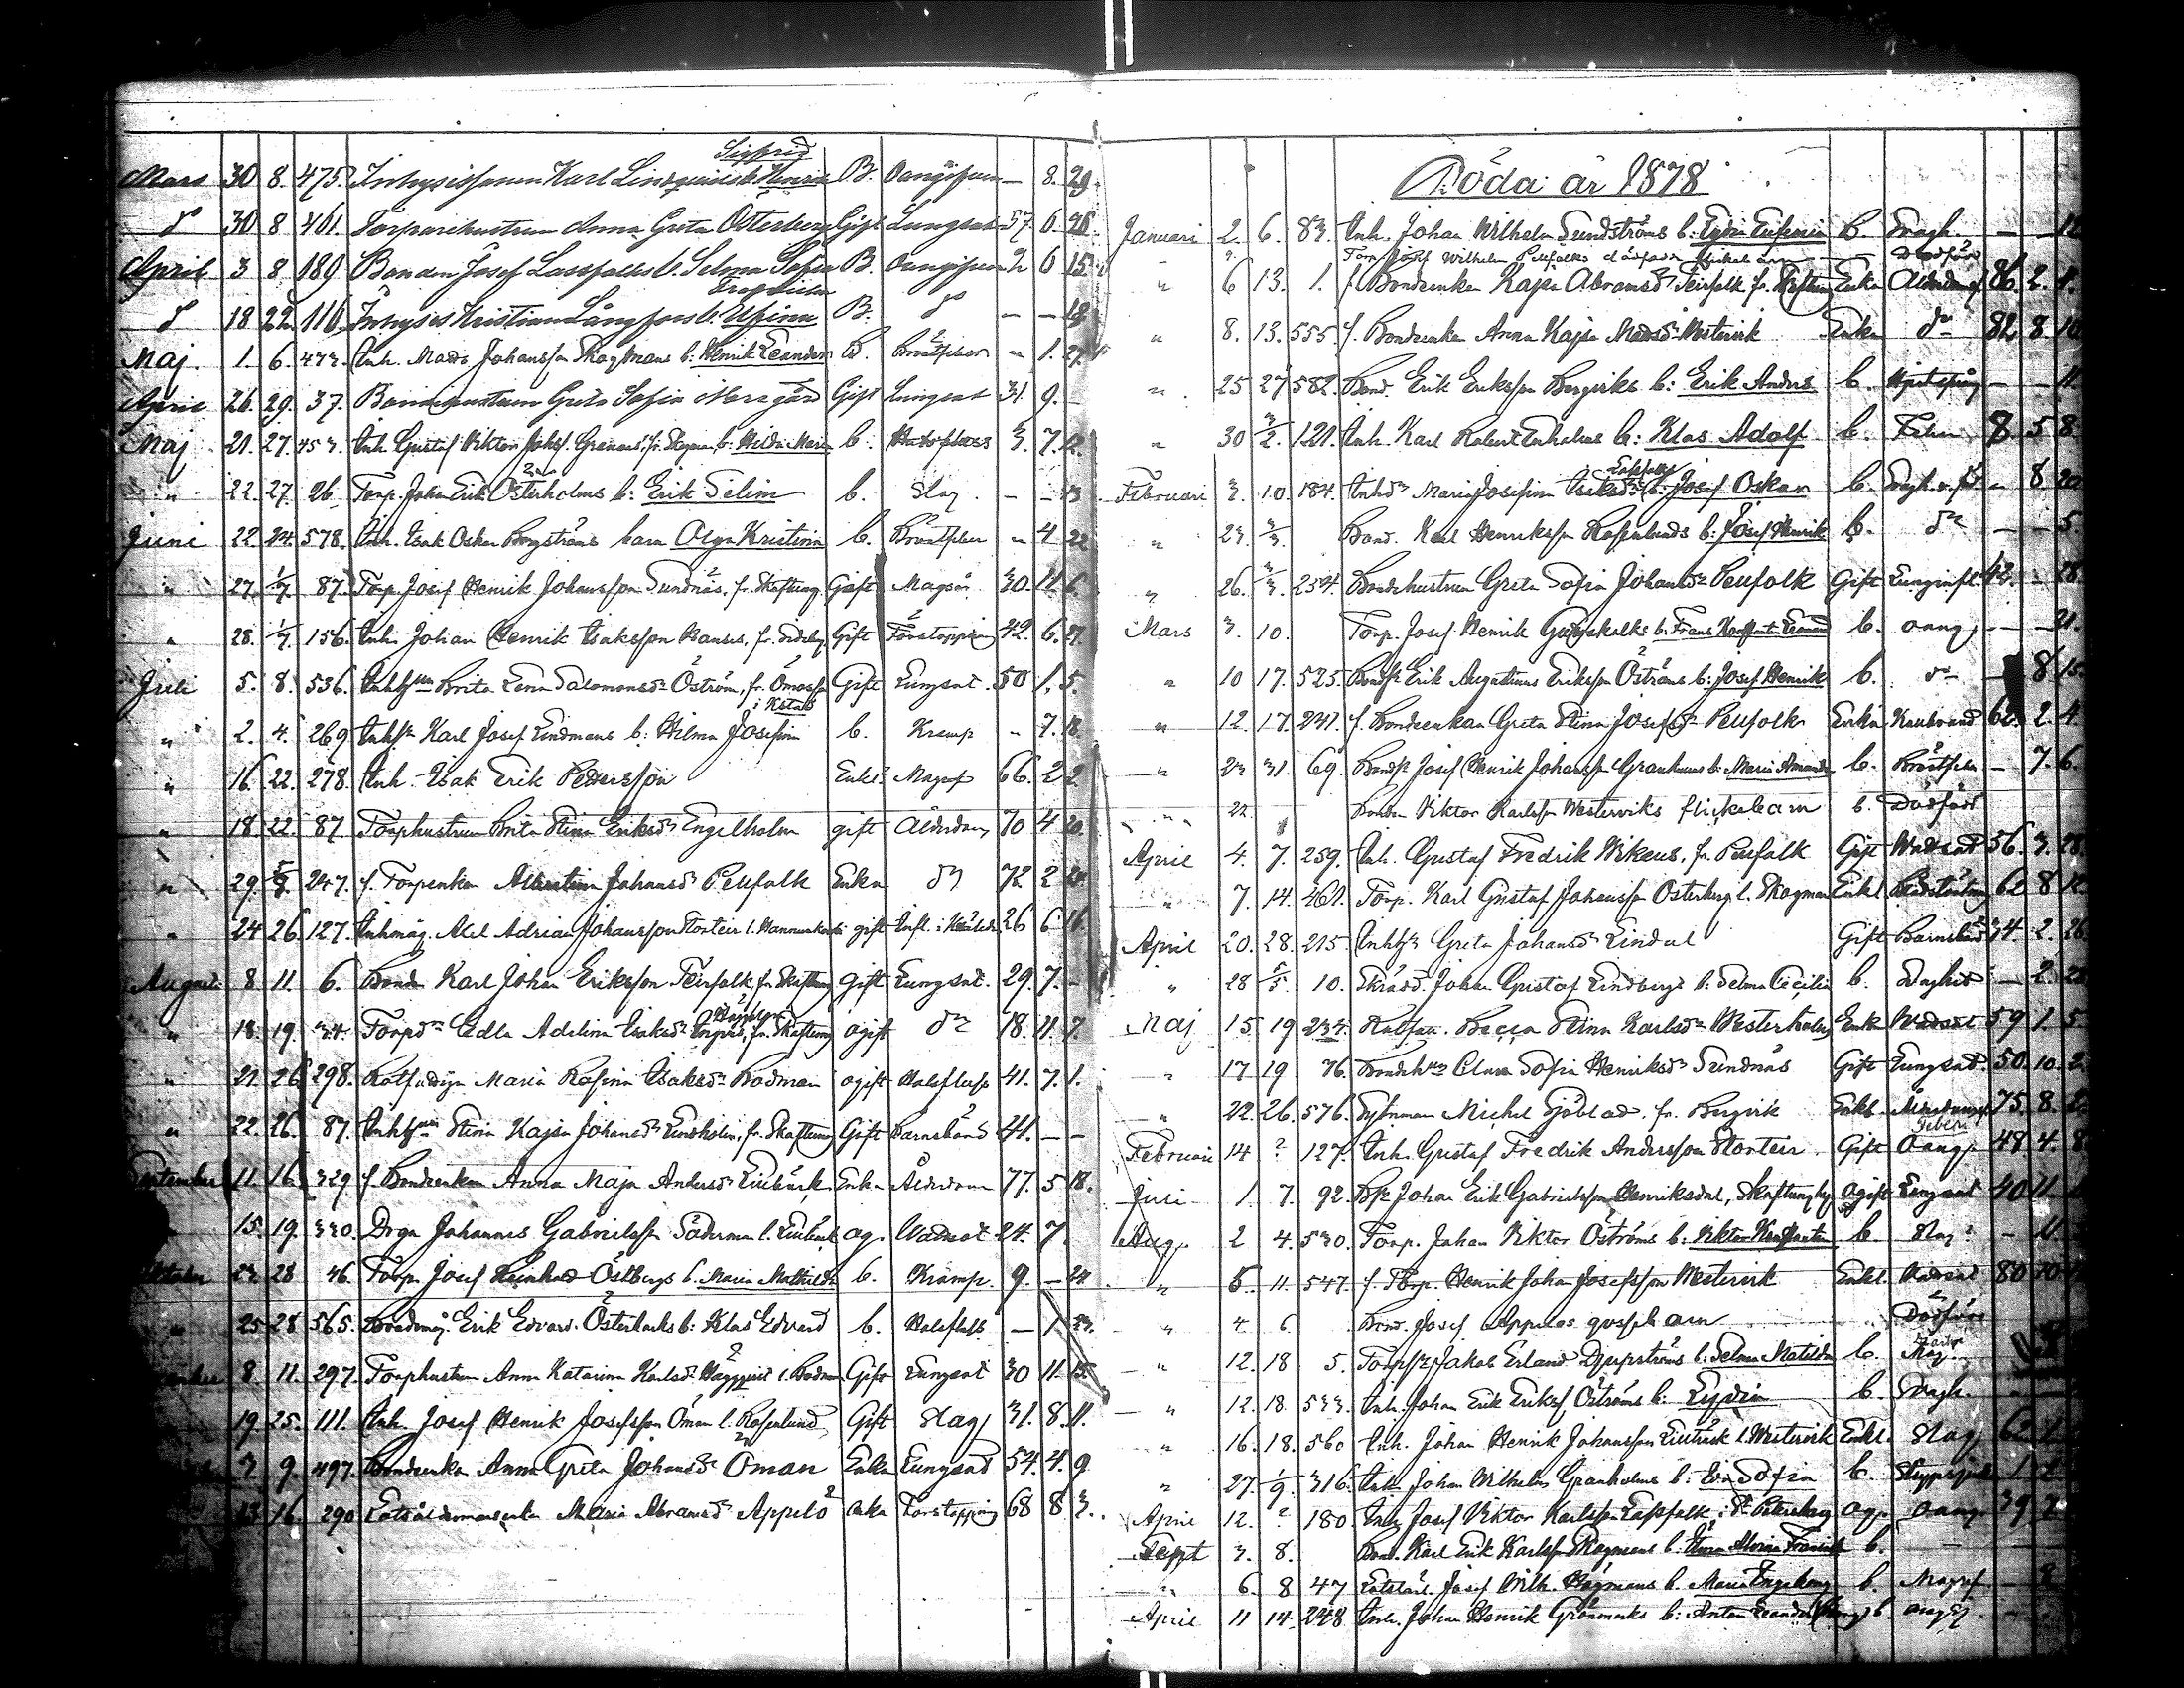 Sigfrid
Mars 30 8. 475. Inhysessonen Karl Lindqvists b. Henrik B. Oangifven — 8. 29.
d:o 30 8 461. Torparehustrun Anna Greta Österberg Gift Lungsot 57. 6. 26.
April 3 8 189 Bonden Josef Lassfolks b. Selma Sofia B. Oangifven 2 6 15.
d:o 18 22 116 Inhyses Kristian Långfors b. Ufina B. d:o — — 18.
Maj. 1. 6. 473. Inh. Matts Johansson Skogmans b: Henrik Leander B. Bröstfeber " 1. 27.
April 26. 29. 37. Bondhustrun Greta Sofia Norrgård Gift Lungsot 31. 9. —
Maj 21. 27. 453. Inh. Gustaf Viktor Johs. Granaus, fr. b: Hilda Maria b. Halsflass 3. 7. 12.
" 22. 27. 26. Torp. Johan Erik Österholms b: Erik Selim b. Slag. — — 13
Juni 22. 24. 578. Inh. Isak Oskar Bergströms barn Olga Kristina b. Bröstfeber " 4 22
" 27. 1/7. 87. Torp. Josef Henrik Johansson Sundnäs, fr. Skaftung. Gift Magsår 30. 11. 6.
" 28. 1/7 156. Inh. Johan Henrik Isaksson Hanses, fr. Gift Förstoppning 42. 6. 27.
Juli 5. 8. 536. Inhh:un Brita Lena Salomonsd:r Öström, fr. Ömossa Gift Lungsot. 50 1. 5.
i Kstad
" 2. 4. 269 Inhs:n Karl Josef Lindmans b: Hilma Josefina b. Kramp " 7. 18.
" 16. 22. 278. Inh. Isak Erik Pettersson Enkl: Magref 66. 2 2.
" 18. 22. 87. Torphustrun Brita Stina Eriksd:r Engelholm gift Ålderdom 70 4 20.
" 29 5/8. 247. f. Torpenkan Albertina Johansd:r Pellfolk Enka d:o 72 2
" 24 26. 127. Inhmåg. Abel Adrian Johansson Storteir l. gift Infl. i 26 6 16.
August. 8 11. 6. Bonden Karl Johan Eriksson Teirfolk, fr. Skaftung gift Lungsot. 29. 7. —
" 18. 19. 34. Torpd:r Edla Adelina Isaksd:r fr. Skaftung ogift d:o 18. 11. 7.
" 21. 26. 298. Rotfattiga Maria Rosina Isaksd:r Bodman ogift Halsfluss 41. 7. 1.
" 22. 26. 87. Inhh:un Stina Kajsa Johansd:r Lindholm, fr. Skaftung Gift Barnsbörd 41. — —
September 11. 16. 329 f. Bondenkan Anna Maja Andersd:r Enka Ålderdom 77. 5 18.
15. 19. 330. Dr:gn Johannes Gabrielsson Söderman l. og. Vattusot 24. 7.
Oktober 23 28 46. Torp. Josef Reinhold Östbergs b. Maria Mathilda b. Kramp. 9. — 24
" 25 28 565. Erik Edvard Österbacks b: Klas Edvard b. Halsfluss — 1 23.
8. 11. 297. Torphustrun Anna Katarina Karlsd:r Häggqvist l. Bodman Gift Lungsot 30 11. 15.
19. 25. 111. Inh. Josef Henrik Josefsson Öman l. Rosenlund, Gift Slag 31. 8. 11.
3 9. 497. Bondenka Anna Greta Johansd:r Öman Enka Lungsot 54. 4. 9
13 16. 290 Maria Abramsd:r Appelö enka Förstoppning 68 8 3.
Döda år 1878
Januari 2. 6. 83. Inh. Johan Wilhelm Sundströms b. Eufemia b. Dragh. — — 12
Torp. Josef Wilhelm Pellfolks dödfödda flickebarn Dödfödd
" 6 13. 1. f. Bondenkan Kajsa Abramsd:r Teirfolk fr. Skaftung Enka Ålderdomsf. 86. 2. 1.
" 8. 13. 555. f. Bondenkan Anna Kajsa Mattsd:r Westervik Enka d:o 82. 8. 10
" 25 27 582. Bond. Erik Eriksson Bergviks b: Erik Anders b. — — 11
" 30 3/2. 121. Inh. Karl Robert Enholms b: Klas Adolf b. Feber 8 5 8.
Februari 3. 10. 184. Inhd:r Maria Josefina Isaksd:r Lassfolks b: Josef Oskar b. " 8. 20.
" 23. 3/3. Bond. Karl Henriksson Rosenlunds b: Josef Henrik b. d:o — — 5.
" 26. 3/3. 254. Bondehustrun Greta Sofia Johansd:r Pellfolk Gift Lunginfl. 43. — 18.
Mars 3. 10. Torp. Josef Henrik b: Frans Konstantin Leonard b. oang. — — 21.
" 10 17. 525. Bonds: Erik Augustinus Eriksson Öströms b: Josef Henrik b. d:o — 8 15.
" 12. 17. 241. f. Bondenkan Greta Stina Josefsd:r Pellfolk Enka Kallbrand 62. 2. 4.
" 23 31. 69. Bonds: Josef Henrik Johansson Granholms b: Maria Amanda b. Bröstfeb. — 7. 6.
" 22. Bonden Viktor Karlsson Westerviks flickebarn b. Dödfödd
April 4. 7. 259. Inh. Gustaf Fredrik Wikens, fr. Pellfolk Gift Wattusot 56. 3. 28.
" 7. 14. 461. Torp. Karl Gustaf Johansson Österberg l. Skogman Enkl. 62 8 12
April 20. 28. 215. Inhh:n Greta Johansd:r Lindal Gift Barnsbörd 34. 2. 26.
" 28 5/5 10. Skrädd. Johan Gustaf Lindbergs b: Selma Cecilia b. Draghet — 2. 28
Maj 15. 19 234. Rotfatt. Stina Karlsd:r Westerholm Enk Wattusot 59 1. 5
" 17 19 76. Bondeh:un Clara Sofia Henriksd:r Sundnäs Gift Lungsot. 50. 10. 2
" 22. 26. 576. Sytnman Michel Sjöblad, fr. Bergvik Enkl. Ålderdomsf 75. 8. 23
Februari 14 ? 127. Inh. Gustaf Fredrik Andersson Storteir Gift Oang. 48 4. 8.
Juli 1. 7. 92. Johan Erik Gabrielsson Henriksdal, Skaftungby ogift Lungsot 40 11.
Aug. 2 4. 530. Torp. Johan Viktor Öströms b: Viktor Konstantin b. Slag — 11.
" 5. 11. 547. f. Torp. Henrik Johan Josefsson Westervik Enkl. Wattusot 80 10
" 4. 6. Bond. Josef Appelös gossebarn Dödfödd
" 12. 18 5. Jakob Erland Djupströms b: Selma Matilda b. Mag.
" 12. 18 533. Inh. Johan Erik Eriksf Öströms b: Lydia b. Dragh. —
" 16. 18. 560 Inh. Johan Henrik Johansson l. Westervik Enkl. Slag 62
" 27. 1/9. 316. Inh. Johan Wilhelm Granholms b: Eva Sofia b. 1 2
April 12. ? 180. Inh. Josef Viktor Karlsson Lassfolk i St Petersburg og. oang. 39 2
Sept 3. 8. Bond. Karl Erik Karlsson Skogmans b: b. — —
" 6. 8 47 Josef Wilh. Hagmans b. Maria Ingeborg b. Magref — 8
April 11 14. 248 Inh. Johan Henrik Grönmarks b: Anton Leander b. oang.